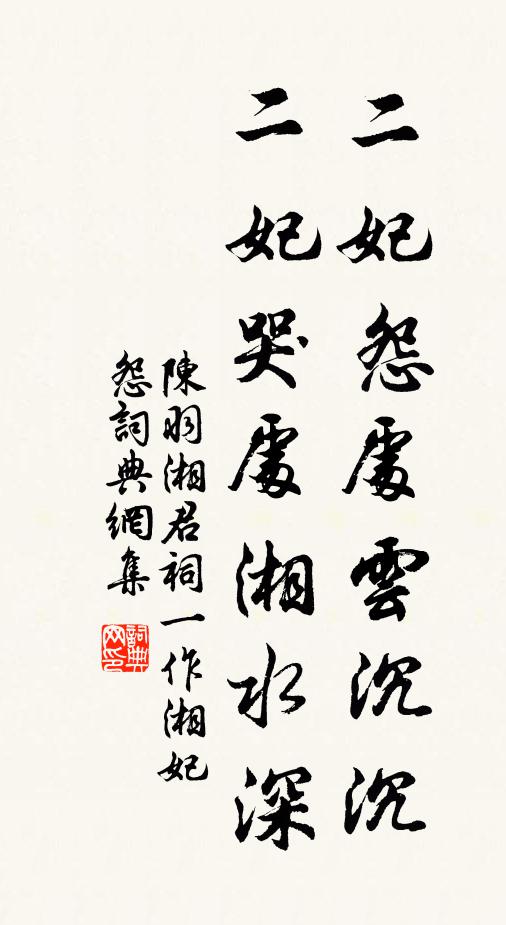 二妃怨處雲沉沉
二妃哭處湘水深
陳羽湘君祠一作湘妃
怨詞典網集
詞典網印